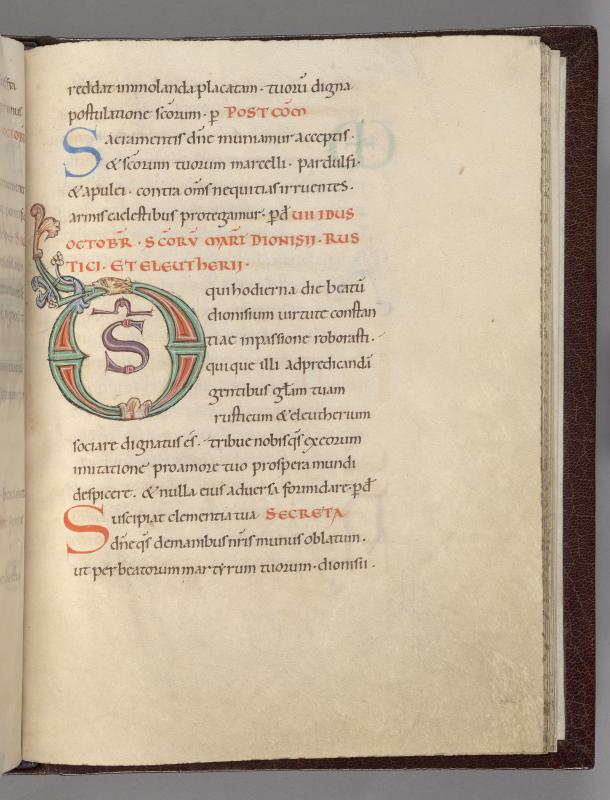 reddat immolanda placatam · tuorū digna
postulatione scōrum · p̄ POST CŌM
Sacramentis dn̄e muniamur acceptis ·
& scōrum tuorum marcelli · pardulfi ·
& apulei · contra om̄s nequitias irruentes ·
armis caelestibus protegamur · p̄ d̄ VII IDUS
OCTOBR̄ · SCORV̄ MAR̄T DIONISII · RUS
TICI · ET ELEUTHERII ·
D̄S qui hodierna die beatū
dionisium uirtute constan
tiae in passione roborasti ·
quique illi ad predicandā
gentibus gl̄am tuam
rusticum & eleutherium
sociare dignatus es̄ · tribue nobis q̄s ex eorum
imitatione pro amore tuo prospera mundi
despicere · & nulla eius aduersa formidare · p̄ d̄
Suscipiat clementia tua SECRETA
dn̄e q̄s de manibus nr̄is munus oblatum ·
ut per beatorum martyrum tuorum · dionisii ·